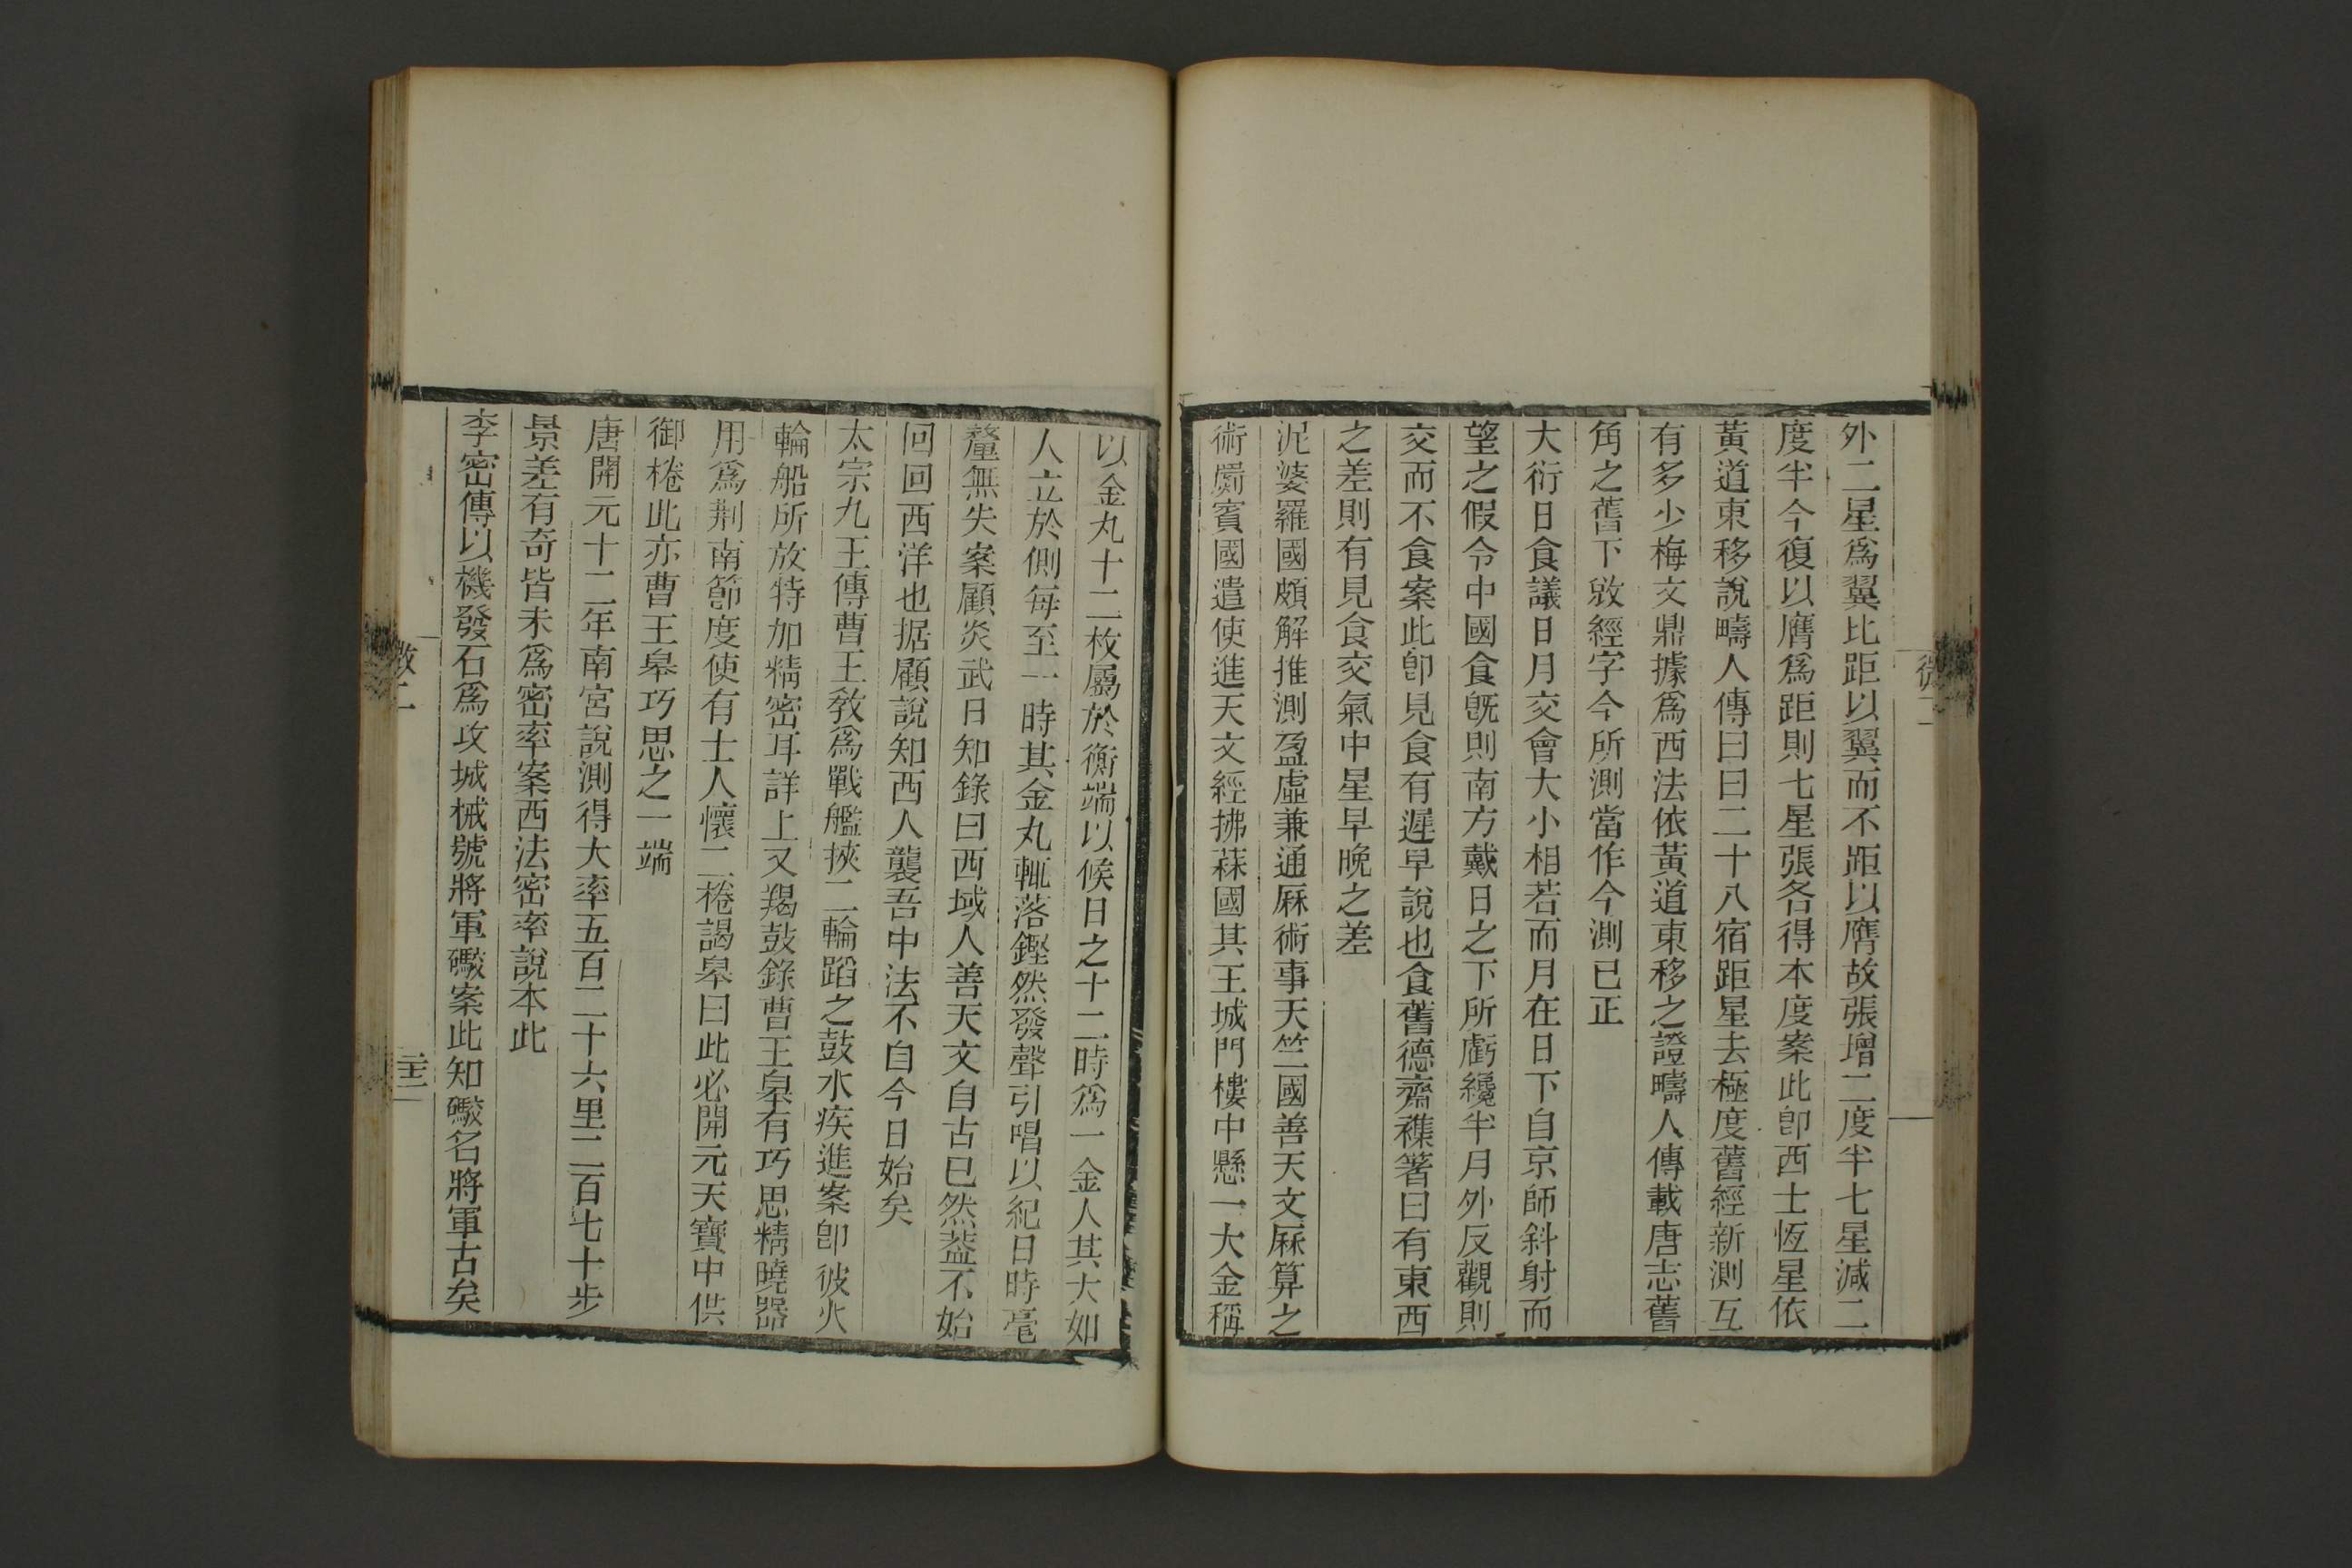 外二星爲翼比距以翼而不距以膺故張增二度半七星減二
度半今復以膺爲距則七星張各得本度案此卽西士恆星依
黃道東移說疇人傳曰曰二十八宿距星去極度舊經新測互
有多少梅文鼎據爲西法依黃道東移之證疇人傳載唐志舊
角之舊下敓經字今所測當作今測已正
大衍日食議日月交會大小相若而月在日下自京師斜射而
望之假令中國食旣則南方戴日之下所虧纔半月外反觀則
交而不食案此卽見食有遲早說也食舊德齋襍箸曰有東西
之差則有見食交氣中星早晚之差
泥婆羅國頗解推測盈虛兼通厤術事天竺國善天文厤算之
術罽賓國遣使進天文經拂菻國其王城門樓中懸一大金稱
以金丸十二枚屬於衡端以候日之十二時爲一金人其大如
人立於側每至一時其金丸輒落鏗然發聲引唱以紀日時毫
釐無失案顧炎武日知錄曰西域人善天文自古已然葢不始
回回西洋也据顧說知西人襲吾中法不自今日始矣
太宗九王傳曹王敎爲戰艦挾二輪蹈之鼓水疾進案卽彼火
輪船所放特加精密耳詳上又羯鼓錄曹王皋有巧思精曉器
用爲荆南節度使有士人懷二棬謁皋曰此必開元天寶中供
御棬此亦曹王皋巧思之一端
唐開元十二年南宮說測得大率五百二十六里二百七十步
景差有奇皆未爲密率案西法密率說本此
李密傳以機發石爲攻城械號將軍礮案此知礮名將軍古矣